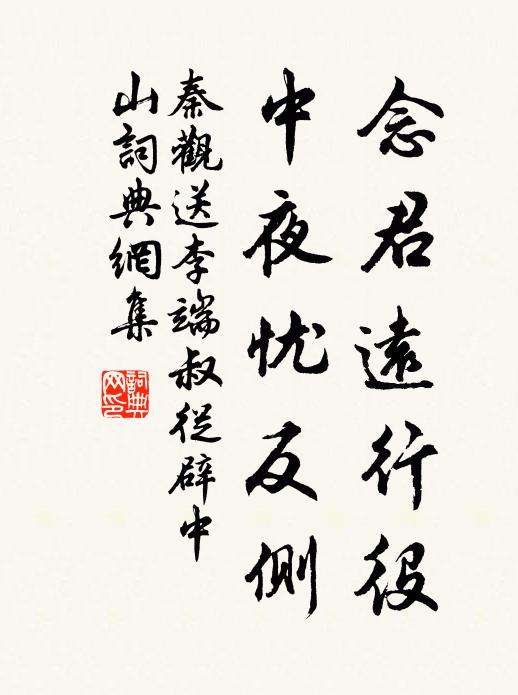 念君遠行役
中夜忧反側
秦觀送李端叔從辟中
山詞典網集
詞典
网印